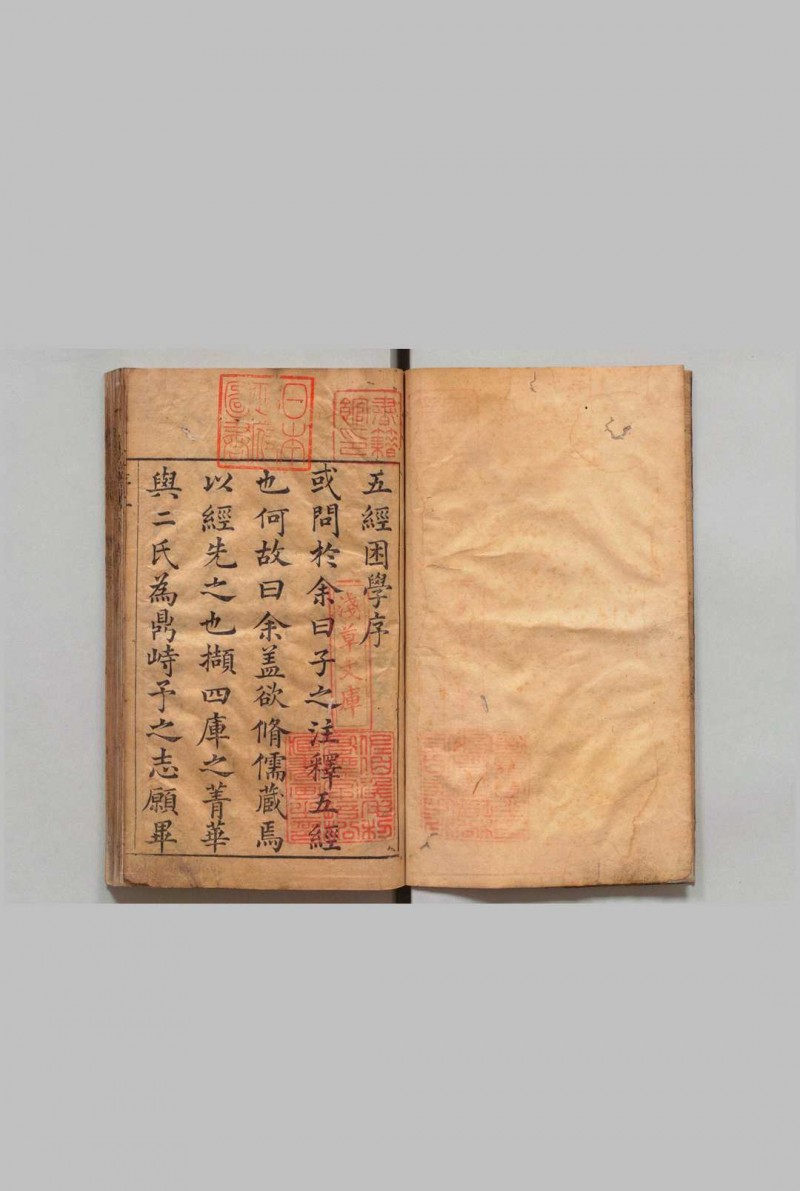 五經困學序
或問於余曰子之注釋五經
也何故曰余盖欲脩儒蔵焉
以經先之也擷四庫之菁華
與二氏為鼎峙予之志願畢
淺草文庫
書籍館印
日本政府圖書